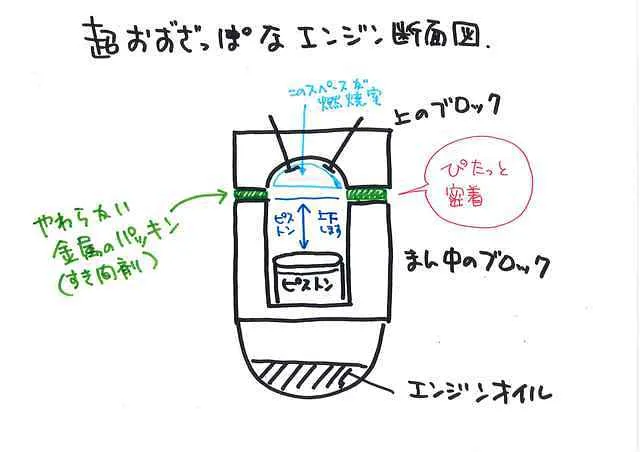 超おおざっぱなエンジン断面図.
このスペースが
燃焼室
上のブロック
ぴたっと
密着
やわらかい
金属のパッキン
(すき間剤)
ピストン
上下します
まん中のブロック
ピストン
エンジンオイル